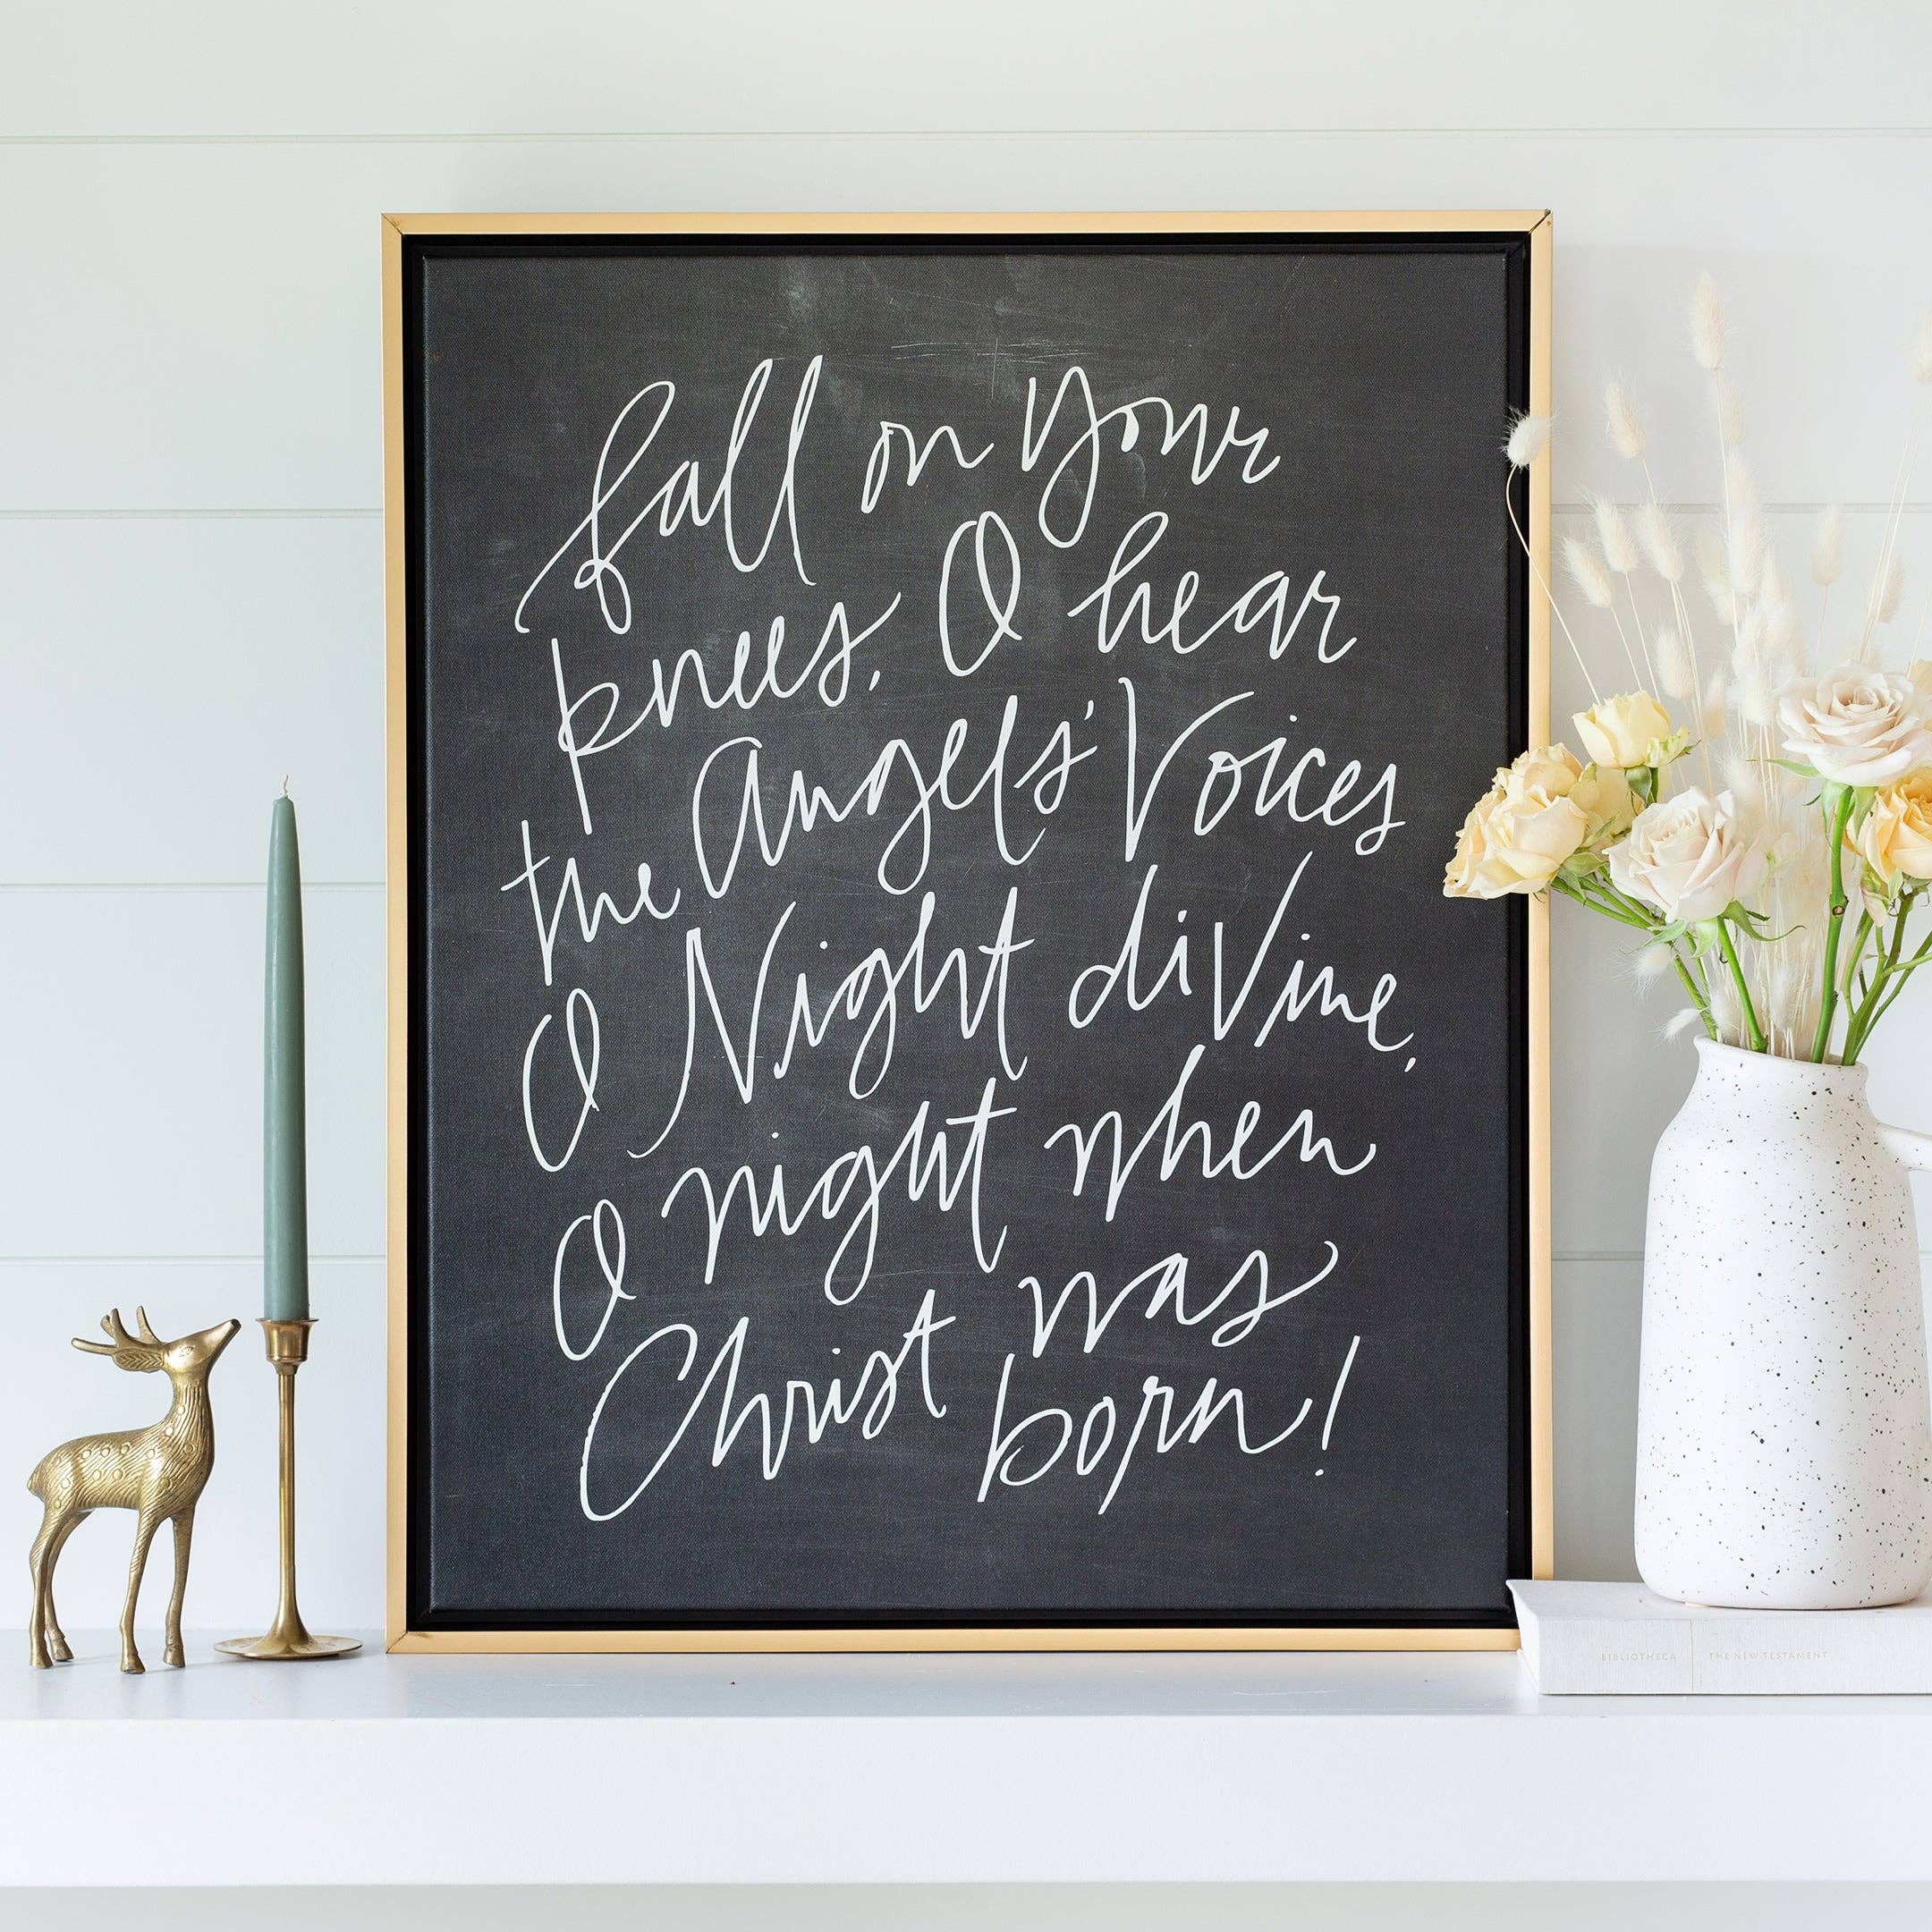 fall on your
knees, O hear
the Angels' Voices
O Night divine,
O night when
Christ was
born!
BIBLIOTHECA THE NEW TESTAMENT